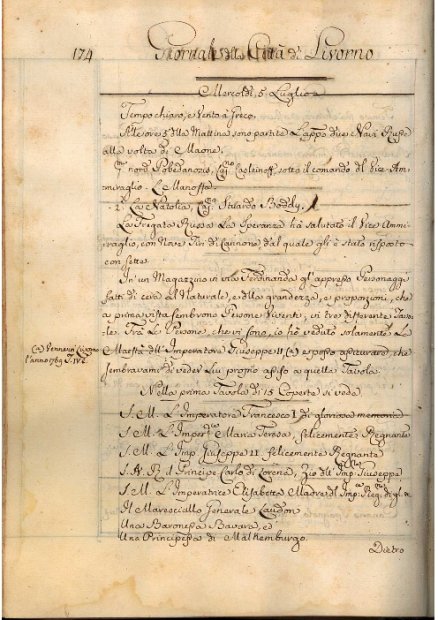 174 Giornale della Città di Livorno
Mercoldì, 5 Luglio
Tempo chiaro, e Vento a Greco.
All'ore 5 della Mattina sono partite L'appo due Navi Russe
alla volta di Maone.
sotto il comando del Vice-Am-
miraglio
2ª La Natolia, Capno
La Fregata Russa La Speranza hà salutato il Vice Ammi-
raglio, con Nove Tiri di Cannone, dal quale gli è stato risposto
con sette.
In un Magazzino in via Ferdinanda gl'appresso Personaggi
fatti di cera al Naturale, e della grandezza, e proporzioni, che
a prima vista sembrano Persone Viventi, in tre differente Tavo-
le. Trà Le Persone, che vi sono, io hò veduto solamente La
Maestà dell'Imperatore Giuseppe II (a) e posso assicurare, che
sembravami di veder Lui proprio assiso a quella Tavola.
(a)
l'anno 1769
Nella prima Tavola di 15 Coperte si vede
S. M. L'Imperatore Francesco I di gloriosa memoria
S. M. L'Impce Maria Teresa, felicemente Regnante
S. M. L'Imp. Giuseppe II felicemente Regnante
S. A. R. il Principe Carlo di Lorena, Zio dell'Imp. Giuseppe
S. M. L'Imperatrice Elisabetta Madre dell'Imp.
Il Maresciallo Generale Laudon
Una Baronessa Bavara, e
Una Principessa di
Dietro